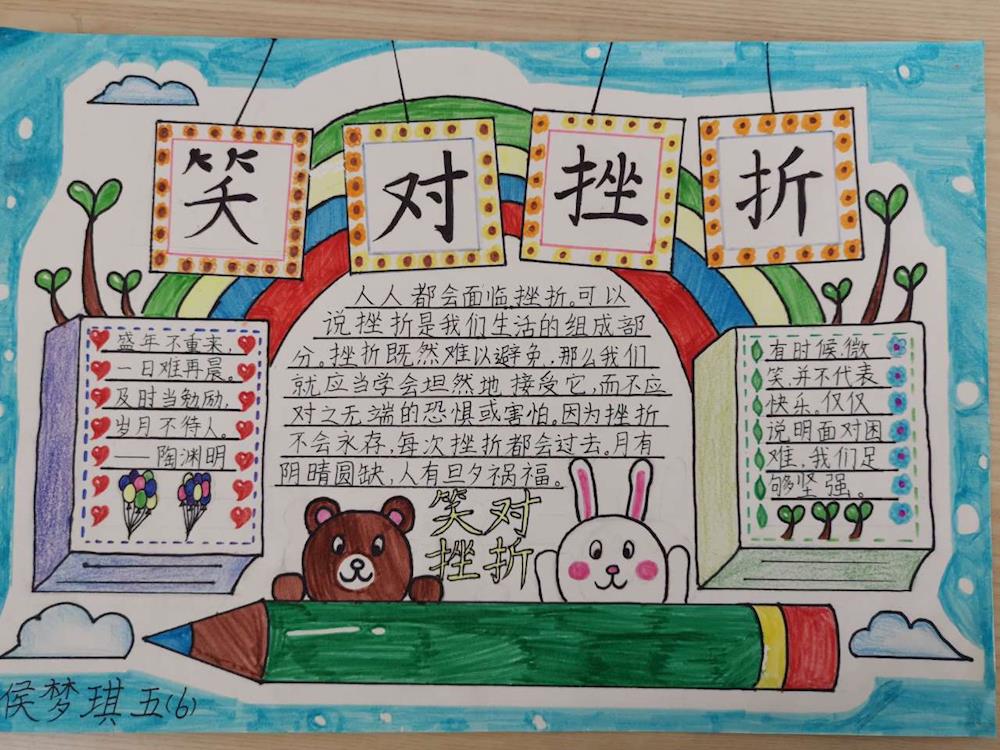 笑对挫折
人人都会面临挫折。可以
说挫折是我们生活的组成部
分。挫折既然难以避免,那么我们
就应当学会坦然地接受它,而不应
对之无端的恐惧或害怕。因为挫折
不会永存,每次挫折都会过去。月有
阴晴圆缺,人有旦夕祸福。
盛年不重来,
一日难再晨。
及时当勉励,
岁月不待人。
——陶渊明
有时候,微
笑,并不代表
快乐。仅仅
说明面对困
难,我们足
够坚强。
笑对
挫折
侯梦琪 五(6)